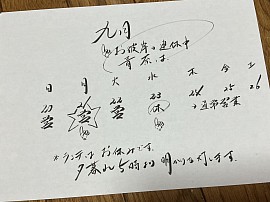 九月
お彼岸の連休中
青家は
日 月 火 水 木 金 土
20 21 22 23 24 25 26
営 営 営 休 通常営業
*ランチはお休みです。
夕暮れ5時より明りを灯します。